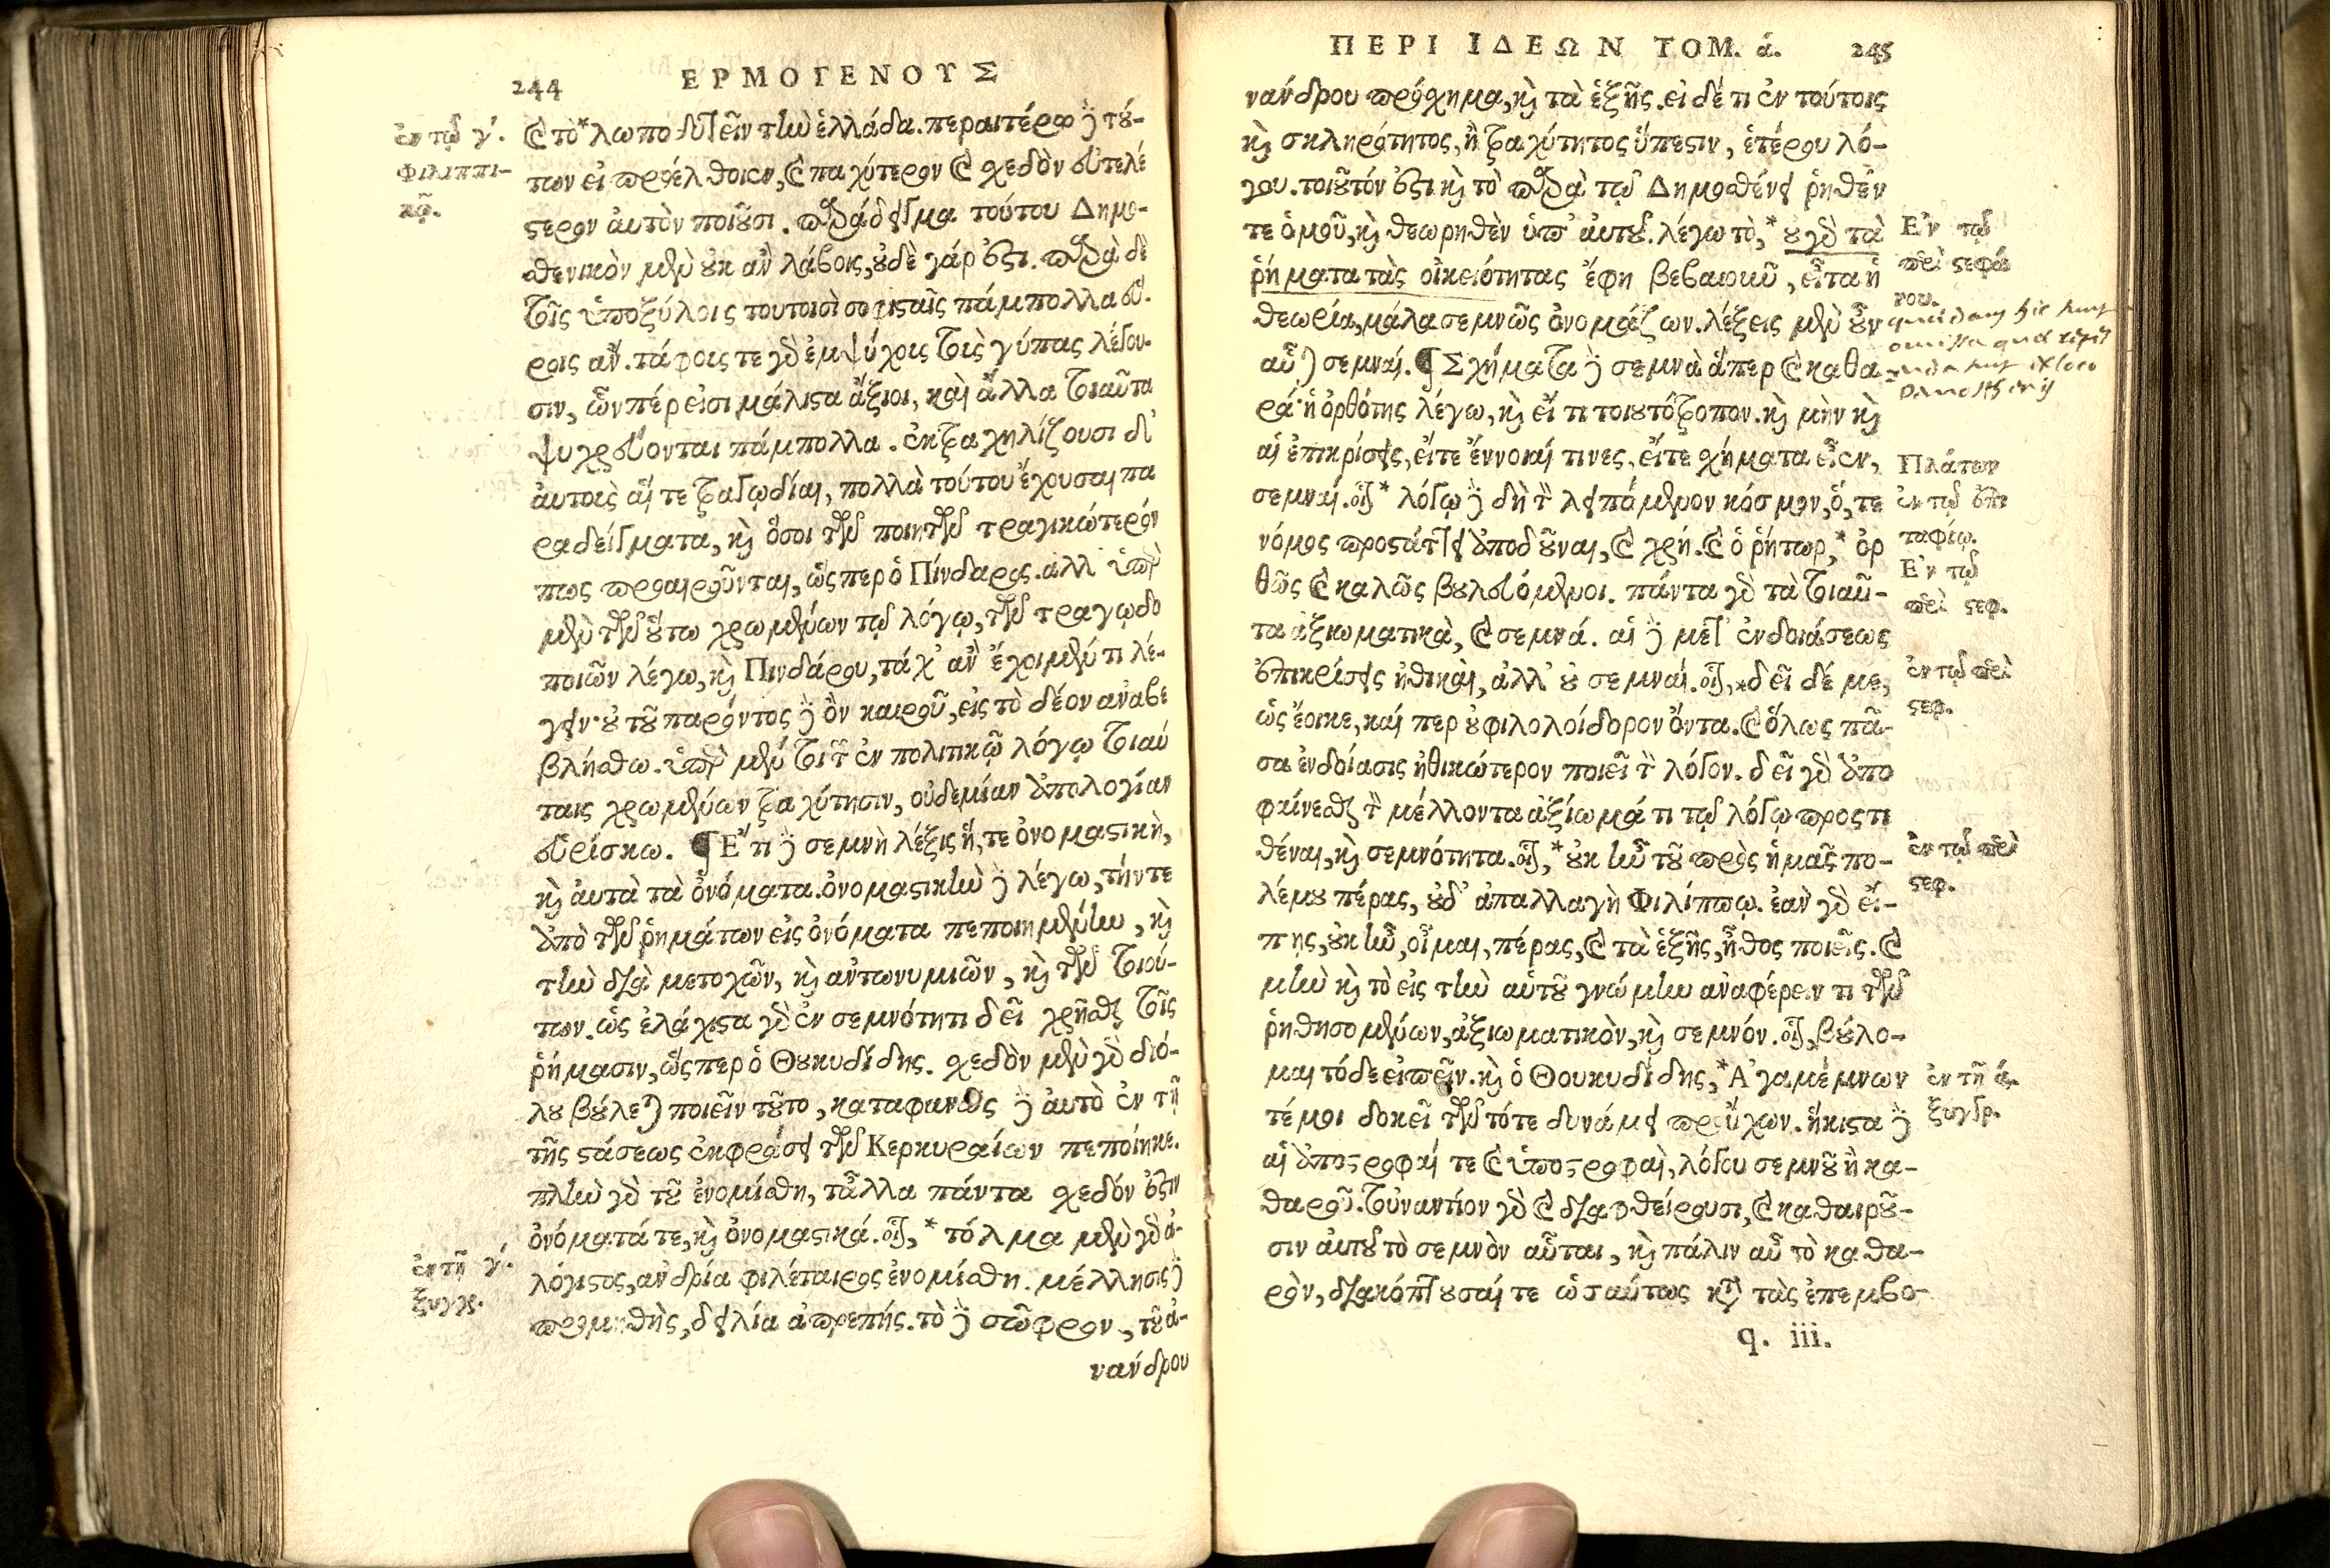 244 ΕΡΜΟΓΕΝΟΥΣ
ἐν τῷ γ'.
Φιλιππι-
κῷ.
καὶ τὸ* λωποδυτεῖν τὴν ἑλλάδα. περαιτέρω δὲ τού-
των εἰ προέλθοιεν, καὶ παχύτερον καὶ σχεδὸν εὐτελέ
στερον ἀυτὸν ποιοῦσι. παράδειγμα τούτου Δημο-
σθενικὸν μὲν οὐκ ἂν λάβοις, οὐδὲ γάρ ἐστι. παρὰ δὲ
τοῖς ὑποξύλοις τουτοισὶ σοφισταῖς πάμπολλα εὕ-
ροις ἄν. τάφοις τε γὰρ ἐμψύχοις τοὺς γύπας λέγου-
σιν, ὧνπέρ εἰσι μάλιστα ἄξιοι, καὶ ἄλλα τοιαῦτα
ψυχρεύονται πάμπολλα. ἐκτραχηλίζουσι δ'
ἀυτοὺς αἵ τε τραγῳδίαι, πολλὰ τούτου ἔχουσαι πα
ραδείγματα, καὶ ὅσοι τῶν ποιητῶν τραγικώτερόν
πως προαιροῦνται, ὥσπερ ὁ Πίνδαρος. ἀλλ' ὑπὲρ
μὲν τῶν οὕτω χρωμένων τῷ λόγῳ, τῶν τραγῳδο
ποιῶν λέγω, καὶ Πινδάρου, τάχ' ἂν ἔχοιμέν τι λέ-
γειν· οὐ τοῦ παρόντος δὲ ὂν καιροῦ, εἰς τὸ δέον ἀναβε
βλήσθω. ὑπὲρ μέν τοι τῶν ἐν πολιτικῷ λόγῳ τοιαύ
ταις χρωμένων τραχύτησιν, οὐδεμίαν ἀπολογίαν
εὑρίσκω. ¶ Ἔτι δὲ σεμνὴ λέξις ἥ, τε ὀνομαστικὴ,
καὶ ἀυτὰ τὰ ὀνόματα. ὀνομαστικὴν δὲ λέγω, τήν τε
ἀπὸ τῶν ῥημάτων εἰς ὀνόματα πεποιημένην, καὶ
τὴν διὰ μετοχῶν, καὶ ἀντωνυμιῶν, καὶ τῶν τοιού-
των. ὡς ἐλάχιστα γὰρ ἐν σεμνότητι δεῖ χρῆσθαι τοῖς
ῥήμασιν, ὥσπερ ὁ Θουκυδίδης. σχεδὸν μὲν γὰρ διό-
λου βούλεται ποιεῖν τοῦτο, καταφανῶς δὲ ἀυτὸ ἐν τῇ
τῆς στάσεως ἐκφράσει τῶν Κερκυραίων πεποίηκε.
πλὴν γὰρ τοῦ ἐνομίσθη, τἆλλα πάντα σχεδόν ἐστιν
ὀνόματά τε, καὶ ὀνομαστικά. οἷον, * τόλμα μὲν γὰρ ἀ-
ἐν τῇ γ'.
ξυγγρ.
λόγιστος, ἀνδρία φιλέταιρος ἐνομίσθη. μέλλησις δὲ
προμηθὴς, δειλία ἀπρεπής. τὸ δὲ σῶφρον, τοῦ ἀ-
νάνδρου
ΠΕΡΙ ΙΔΕΩΝ ΤΟΜ. ά. 245
νάνδρου πρόσχημα, καὶ τὰ ἑξῆς. εἰ δέ τι ἐν τούτοις
καὶ σκληρότητος, ἢ τραχύτητος ὕπεστιν, ἑτέρου λό-
γου. τοιοῦτόν ἐστι καὶ τὸ παρὰ τῷ Δημοσθένει ῥηθέν
τε ὁμοῦ, καὶ θεωρηθὲν ὑπ' ἀυτοῦ. λέγω τὸ, * οὐ γὰρ τὰ
ῥήματα τὰς οἰκειότητας ἔφη βεβαιοῦν, εἶτα ἡ
θεωρία, μάλα σεμνῶς ὀνομάζων. λέξεις μὲν οὖν
αὗται σεμναί. ¶ Σχήματα δὲ σεμνὰ ἅπερ καὶ καθα
ρά· ἡ ὀρθότης λέγω, καὶ εἴ τι τοιουτότροπον. καὶ μὴν καὶ
αἱ ἐπικρίσεις, εἴτε ἔννοιαί τινες, εἴτε σχήματα εἶεν,
σεμναί. οἷον * λόγῳ δὲ δὴ τὸν λειπόμενον κόσμον, ὅ, τε
νόμος προστάττει ἀποδοῦναι, καὶ χρή. καὶ ὁ ῥήτωρ, * ὀρ
θῶς καὶ καλῶς βουλευόμενοι. πάντα γὰρ τὰ τοιαῦ-
τα ἀξιωματικὰ, καὶ σεμνά. αἱ δὲ μετ' ἐνδοιάσεως
ἐπικρίσεις ἠθικαὶ, ἀλλ' οὐ σεμναί. οἷον, * δεῖ δέ με,
ὡς ἔοικε, καί περ οὐ φιλολοίδορον ὄντα. καὶ ὅλως πᾶ-
σα ἐνδοίασις ἠθικώτερον ποιεῖ τὸν λόγον. δεῖ γὰρ ἀπο
φαίνεσθαι τὸν μέλλοντα ἀξίωμά τι τῷ λόγῳ προστι
θέναι, καὶ σεμνότητα. οἷον, * οὐκ ἦν τοῦ πρὸς ἡμᾶς πο-
λέμου πέρας, οὐδ' ἀπαλλαγὴ Φιλίππῳ. ἐὰν γὰρ εἴ-
πῃς, οὐκ ἦν, οἶμαι, πέρας, καὶ τὰ ἑξῆς, ἦθος ποιεῖς. καὶ
μὴν καὶ τὸ εἰς τὴν αὑτοῦ γνώμην ἀναφέρειν τι τῶν
ῥηθησομένων, ἀξιωματικὸν, καὶ σεμνόν. οἷον, βούλο-
μαι τόδε εἰπεῖν. καὶ ὁ Θουκυδίδης, * Ἀγαμέμνων
τέ μοι δοκεῖ τῶν τότε δυνάμει προὔχων. ἥκιστα δὲ
αἱ ἀποστροφαί τε καὶ ὑποστροφαὶ, λόγου σεμνοῦ ἢ κα-
θαροῦ. τοὐναντίον γὰρ καὶ διαφθείρουσι, καὶ καθαιροῦ-
σιν ἀυτοῦ τὸ σεμνὸν αὗται, καὶ πάλιν αὖ τὸ καθα-
ρὸν, διακόπτουσαί τε ὡσαύτως κατὰ τὰς ἐπεμβο-
q. iii.
Ἐν τῷ
περὶ στεφά
νου.
Πλάτων
ἐν τῷ ἐπι
ταφίῳ.
Ἐν τῷ
περὶ στεφ.
ἐν τῷ περὶ
στεφ.
ἐν τῷ περὶ
στεφ.
ἐν τῇ ά.
ξυγγρ.